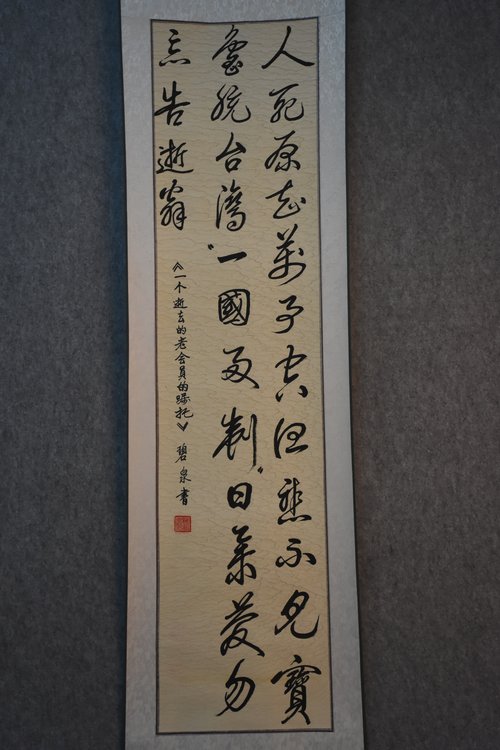 人死原知萬事空但悲不見寶
島統台灣“一國兩制”日慶勿
忘告逝翁
《一个逝去的老會員的嘱托》 碧泉書